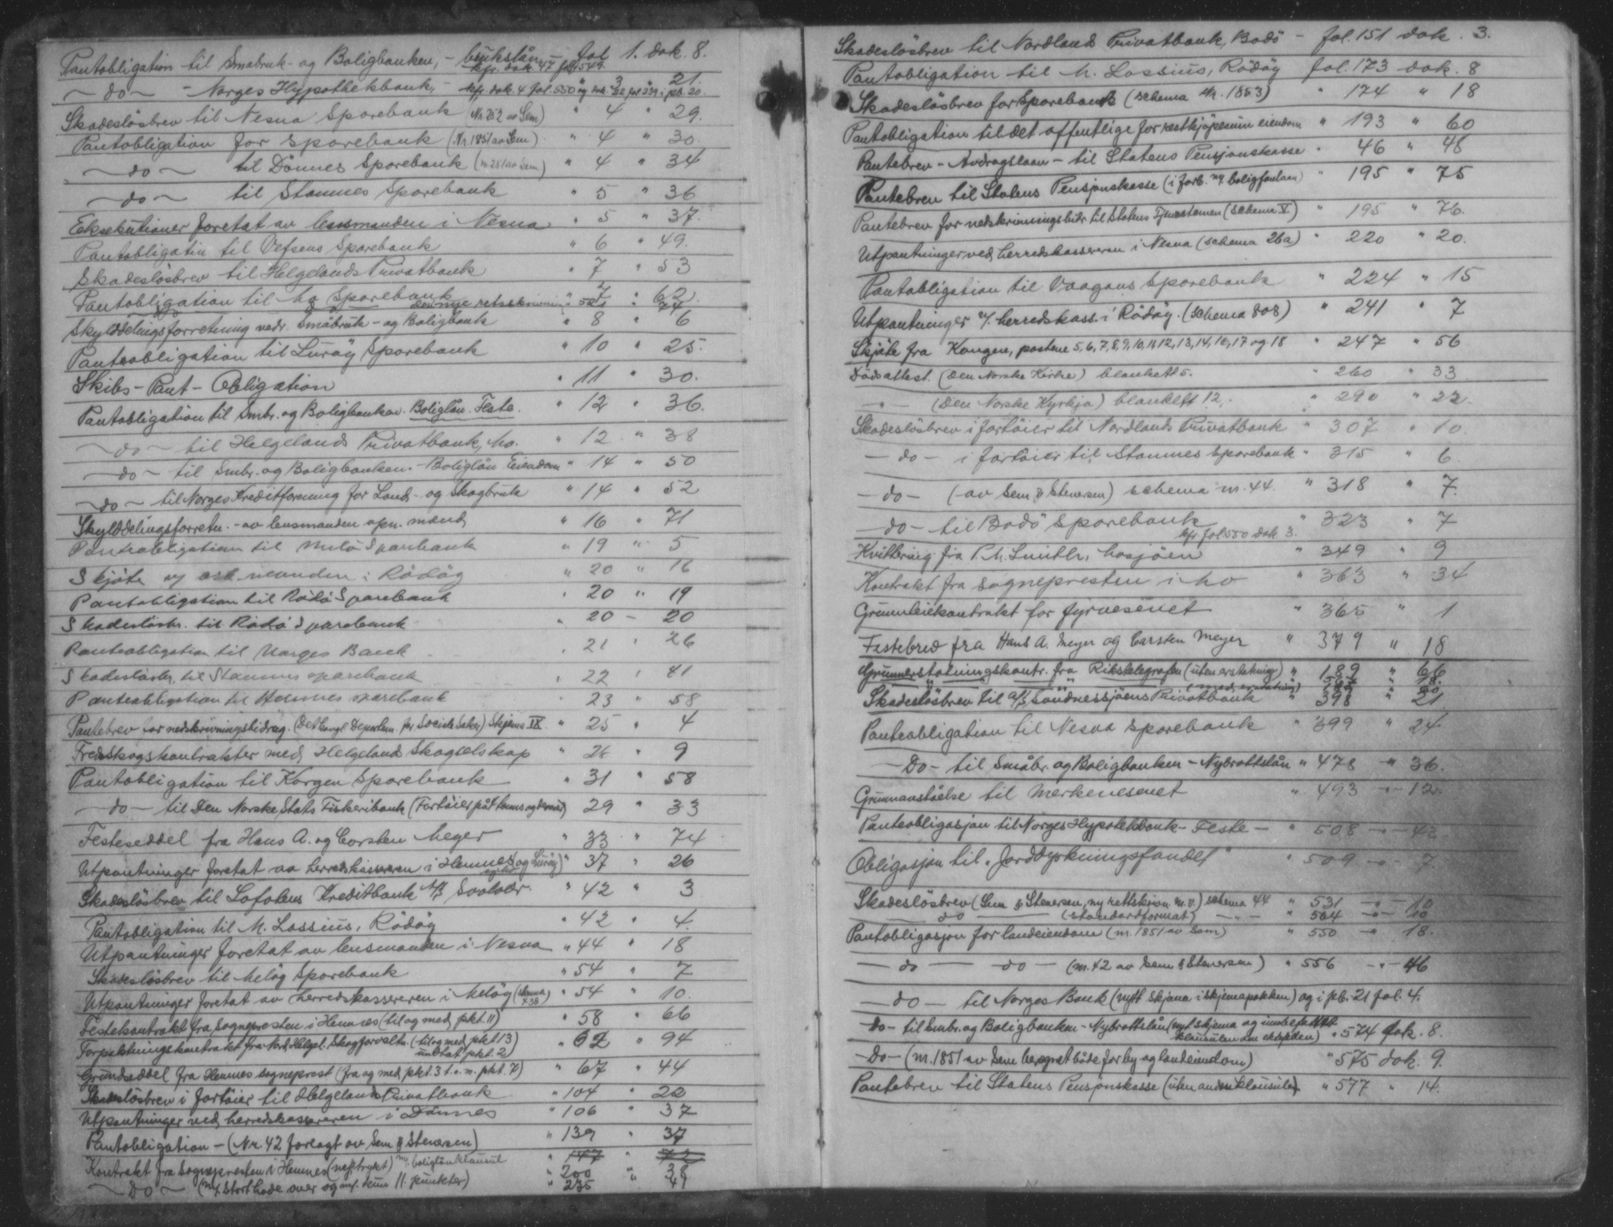 Pantobligation til Småbruk- og Boligbanken, - brukslån - fol 1. dok. 8.
kfr. dok. 47 fol 549
- do - - Norges Hypothekbank, - kfr. dok. 4 fol. 550 " 3 " 21.
Skadesløsbrev til Nesna Sparebank (Nr. 252 av Sem) " 4 " 29.
Pantobligation for Sparebank (Nr. 1851 av Sem) " 4 " 30.
- do - til Dønnes Sparebank " 4 " 34
- do - til Stamnes Sparebank " 5 " 36
Eksekutioner foretat av lensmanden i Nesna " 5 " 37.
Pantobligation til Vefsens Sparebank " 6 " 49.
Skadesløsbrev til Helgelands Privatbank " 7 " 53
Pantobligation til Mo Sparebank " 7 " 62.
Skylddelingsforretning vedr. Småbruk- og Boligbank " 8 " 6
Panteobligation til Lurøy Sparebank " 10 " 25.
Skibs-Pant-Obligation " 11 " 30.
Pantobligation til Smbr. og Boligbanken. Boliglån. Feste. " 12 " 36.
- do - til Helgelands Privatbank, Mo. " 12 " 38
- do - til Smbr. og Boligbanken - Boliglån Eiendom " 14 " 50
- do - til Norges Kreditforening for Land- og Skogbruk " 14 " 52
Skylddelingsforretn. - av lensmanden opn. mænd " 16 " 71
Panteobligation til Meløi Sparebank " 19 " 5
Skjøte " 20 " 16
Pantobligation til Rødø Sparebank " 20 " 19
Skadesløsbr. til Rødø Sparebank 20 - 20
Panteobligation til Norges Bank " 21 " 26
Skadesløsbr. til Stamnes sparebank " 22 " 41
Panteobligation til Hemnes sparebank " 23 " 58
Pantebrev for nedskrivningsbidrag. (Det kongl. Departem. for Sociale Saker) Skjema IX " 25 " 4
Fredskogskontrakter med Helgeland Skogselskap " 26 " 9
Pantobligation til Korgen Sparebank " 31 " 58
- do - til Den Norske Stats Fiskeribank " 29 " 33
Festeseddel fra Hans A. og Carsten Meyer " 33 " 74
Utpantninger foretat av herredskassereren i Hemnes og Lurøy " 37 " 26
Skadesløsbrev til Lofotens Kreditbank A/S Svolvær " 42 " 3
Pantobligation til M. Lossius, Rødøy " 42 " 4.
Utpantninger foretat av lensmanden i Nesna " 44 " 18
Skadesløsbrev til Meløy Sparebank " 54 " 7
Utpantninger foretat av herredskassereren i Meløy " 54 " 10.
Festekontrakt fra Sognepresten i Hemnes (til og med pkt. 11) " 58 " 66
Forpaktningskontrakt fra Nord. Helgel. Skogforvaltn. (til og med pkt. 13) " 62 " 94
unntat pkt. 2)
Grundseddel fra Hemnes sogneprest (fra og med pkt. 3 t. o. m. pkt. 7) " 67 " 44
Skadesløsbrev i fartøier til Helgelands Privatbank " 104 " 22
Utpantninger ved herredskassereren i Dønnes " 106 " 37
Pantobligation - (Nr. 42 forlagt av Sem & Stenersen) " 139 " 37
" 147 " 72
Kontrakt fra Sognepresten i Hemnes (nytrykt) " 200 " 38
- do - " 235 " 41
Skadesløsbrev til Nordlands Privatbank, Bodø - fol. 151 dok. 3.
Pantobligation til M. Lossius, Rødøy fol. 173 dok. 8
Skadesløsbrev for Sparebank (schema Nr. 1853) " 174 " 18
Pantobligation til det offentlige for restkjøpesum eiendom " 193 " 60
Pantebrev - Avdragslaan - til Statens Pensjonskasse " 46 " 48
Pantebrev til Statens Pensjonskasse (i forb. m. boligfonlaan) " 195 " 75
Pantebrev for nedskrivningsbidr. til Statens Tjenestemen (schema V) " 195 " 76.
Utpantninger ved herredskassereren i Nesna (schema 26a) " 220 " 20.
Pantobligation til Vaagans Sparebank " 224 " 15
Utpantninger v. herredskass. i Rødøy. (schema 808) " 241 " 7
Skjøte fra Kongen, postene 5, 6, 7, 8, 9, 10, 11, 12, 13, 14, 16, 17 og 18 " 247 " 56
Dødsattest. (Den Norske Kirke) blankett 5. " 260 " 33
- " - (Den Norske Kyrkja) blankett 12. " 290 " 22.
Skadesløsbrev i fartøier til Nordlands Privatbank " 307 " 10.
- do - i fartøier til Stamnes Sparebank " 315 " 6.
- do - (av Sem & Stenersen) schema nr. 44 " 318 " 7.
- do - til Bodø Sparebank " 323 " 7
kfr. fol 550 dok 3.
Kvittering fra P. M. Smith, Mosjøen " 349 " 9
Kontrakt fra Sognepresten i Mo " 363 " 34
Grunnleiekontrakt for fyrvesenet " 365 " 1
Festebrev fra Hans A. Meyer og Carsten Meyer " 379 " 18
Grunnerstatningskontr. fra Rikstelegrafen (uten avtakning) " 189 " 66
Skadesløsbrev til A/S Sandnessjøens Privatbank " 398 " 21
Panteobligation til Nesna Sparebank " 399 " 24
- Do - til Småbr. og Boligbanken - Nybrottslån " 478 " 36.
Grunnavståelse til Merkevesenet " 493 - " - 12.
Panteobligasjon til Norges Hypotekbank - Feste - " 508 - " - 43
Obligasjon til "Jorddyrkningsfondet" " 509 - " - 7
Skadesløsbrev (Sem & Stenersen, ny rettskrivn. m. v.) schema 44 " 531 - " - 10
do (standardformat) " 564 - " - 10
Pantobligasjon for landeiendom (nr. 1851 av Sem) " 550 - " - 18.
- do - do - (nr. 42 av Sem & Stenersen) " 556 - " - 46
- do - til Norges Bank (nytt skjema i skjemapakken) og i pb. 21 fol. 4.
- do - til Smbr. og Boligbanken - Nybrottslån (nytt skjema og " 574 dok. 8.
- Do - (nr. 1851 av Sem beregnet både for by og landeiendom) " 575 dok. 9.
Pantebrev til Statens Pensjonskasse (uten andre klausuler). " 577 " 14.